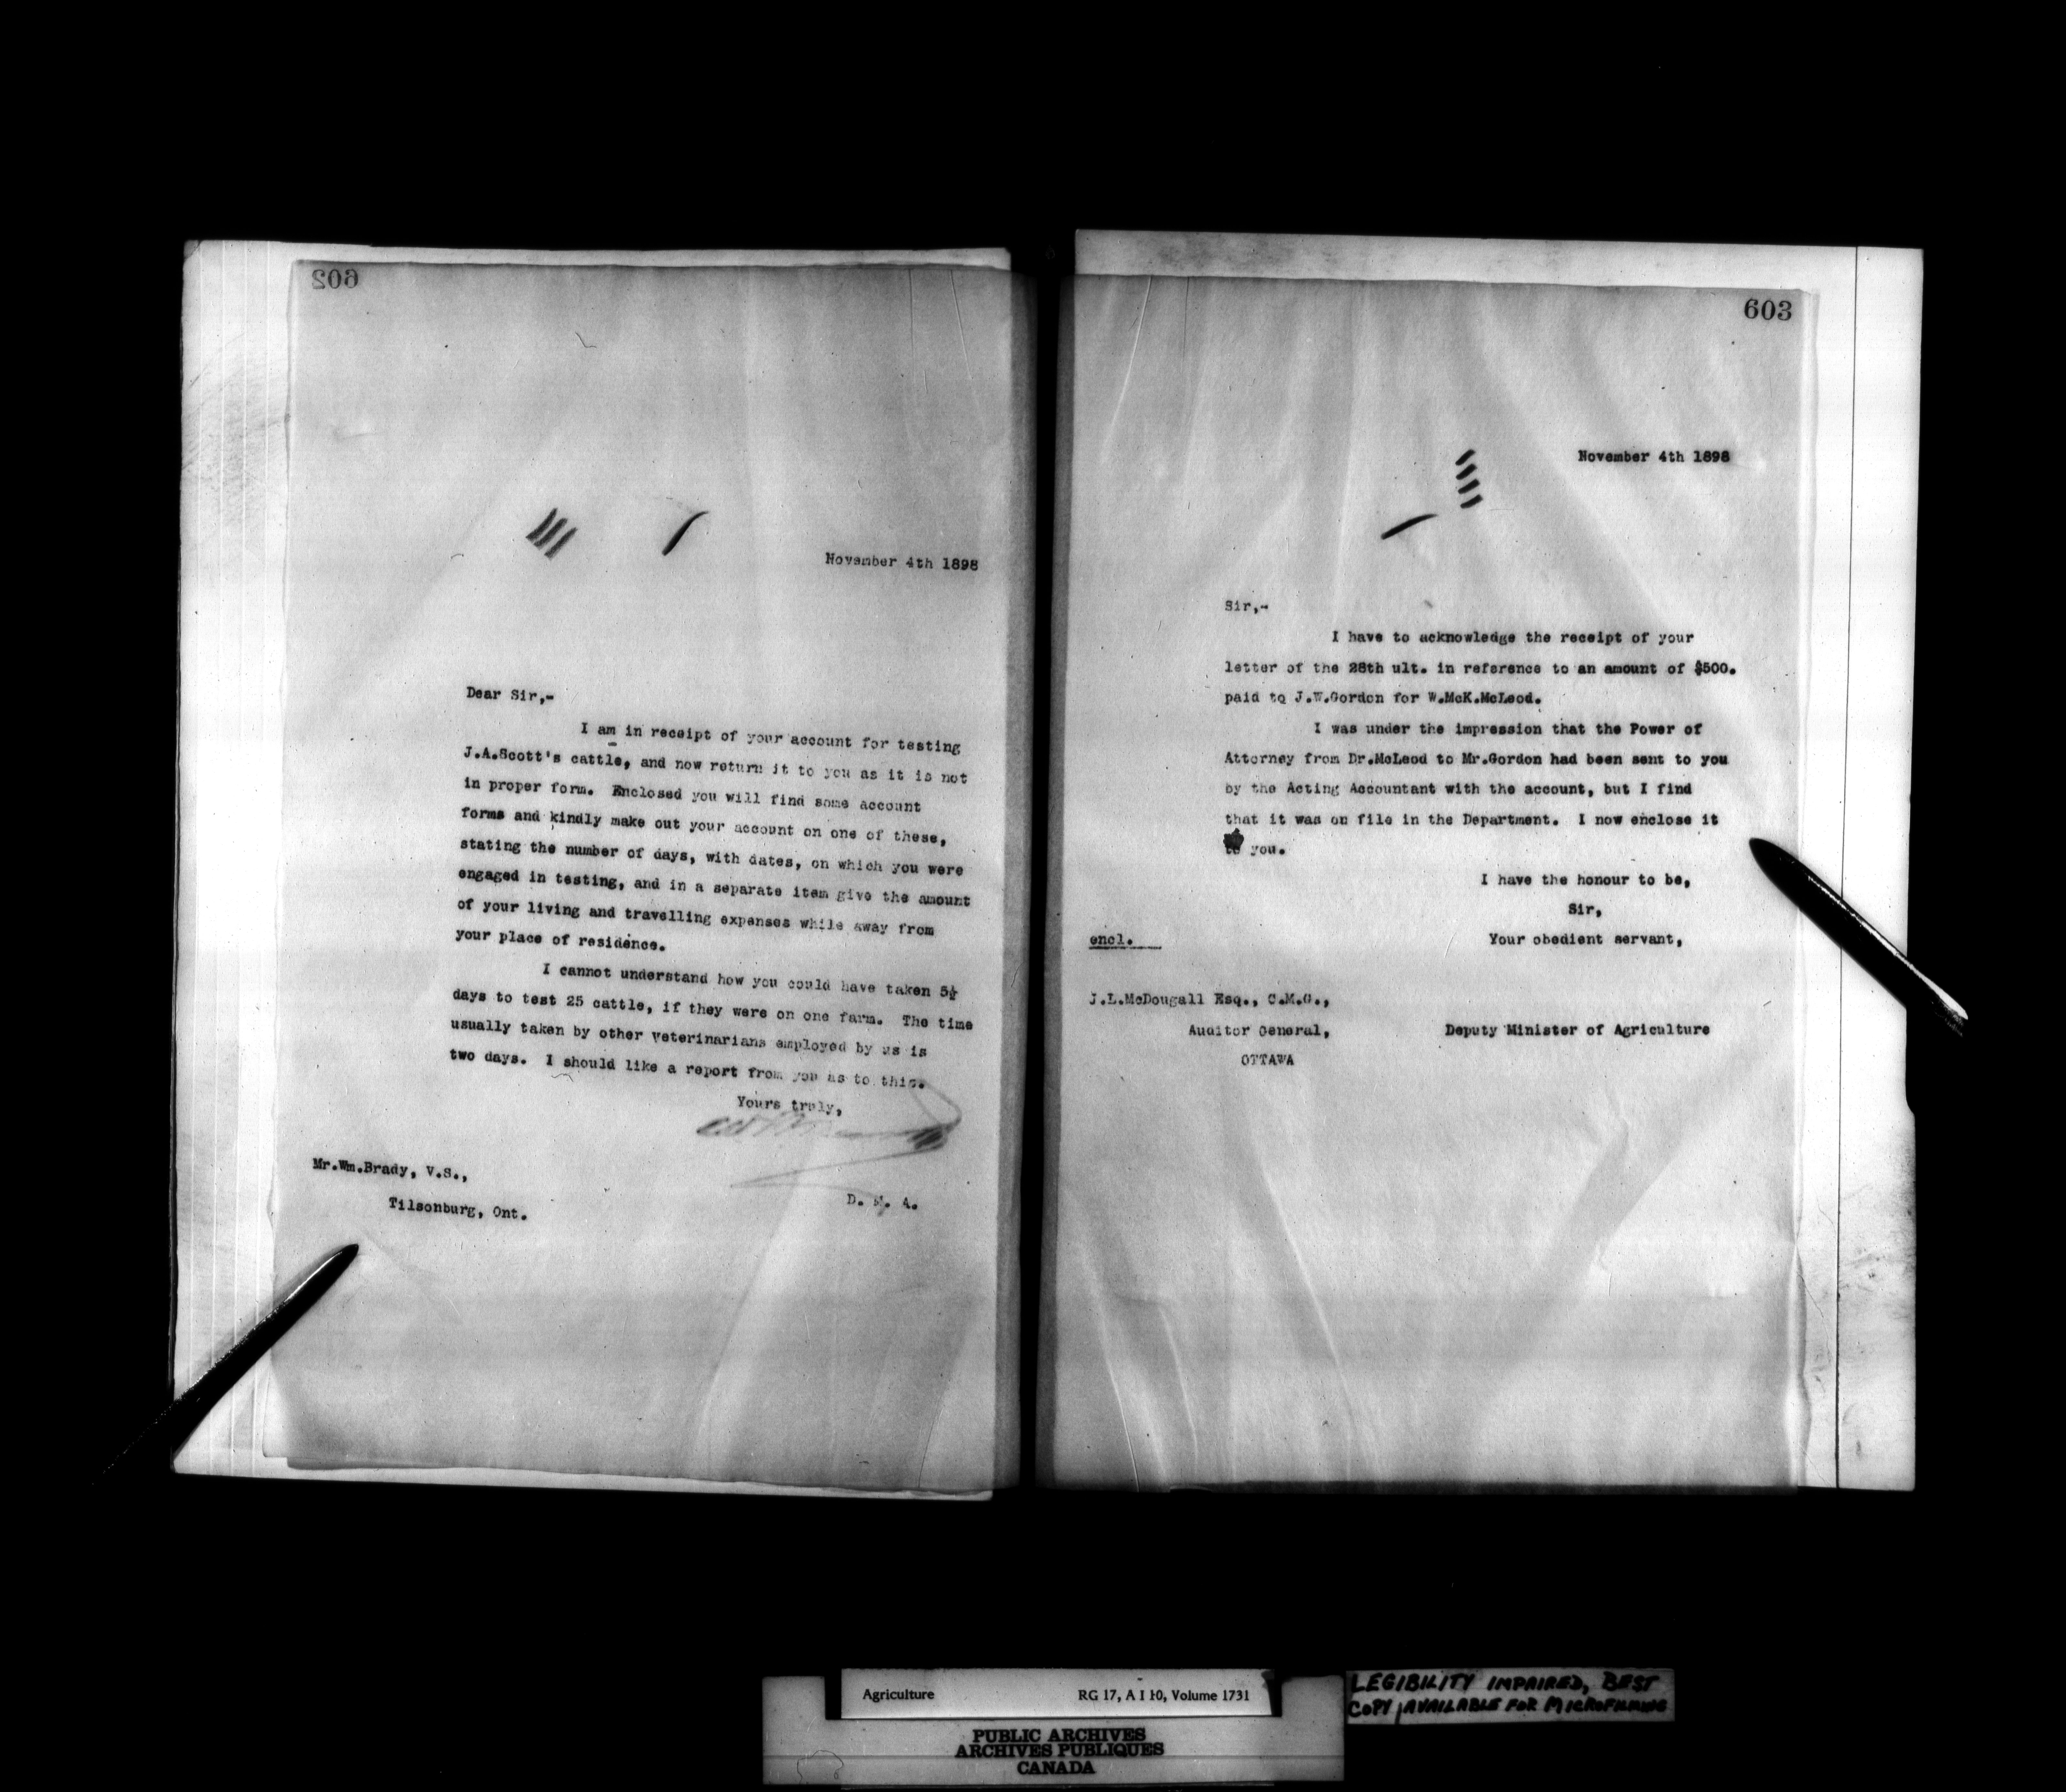 602
November 4th 1898
Dear Sir,-
I am in receipt of your account for testing
J.A.Scott's cattle, and now return it to you as it is not
in proper form. Enclosed you will find some account
forms and kindly make out your account on one of these,
stating the number of days, with dates, on which you were
engaged in testing, and in a separate item give the amount
of your living and travelling expenses while away from
your place of residence.
I cannot understand how you could have taken 5½
days to test 25 cattle, if they were on one farm. The time
usually taken by other veterinarians employed by us is
two days. I should like a report from you as to this.
Yours truly,
Mr.Wm.Brady, V.S.,
Tilsonburg, Ont.
D. M. A.
603
November 4th 1898
Sir,-
I have to acknowledge the receipt of your
letter of the 28th ult. in reference to an amount of $500.
paid to J.W.Gordon for W.McK.McLeod.
I was under the impression that the Power of
Attorney from Dr.McLeod to Mr.Gordon had been sent to you
by the Acting Accountant with the account, but I find
that it was on file in the Department. I now enclose it
to you.
I have the honour to be,
Sir,
Your obedient servant,
encl.
J.L.McDougall Esq., C.M.G.,
Auditor General,
OTTAWA
Deputy Minister of Agriculture
Agriculture RG 17, A I 10, Volume 1731
PUBLIC ARCHIVES
ARCHIVES PUBLIQUES
CANADA
LEGIBILITY IMPAIRED, BEST
COPY AVAILABLE FOR MICROFILMING